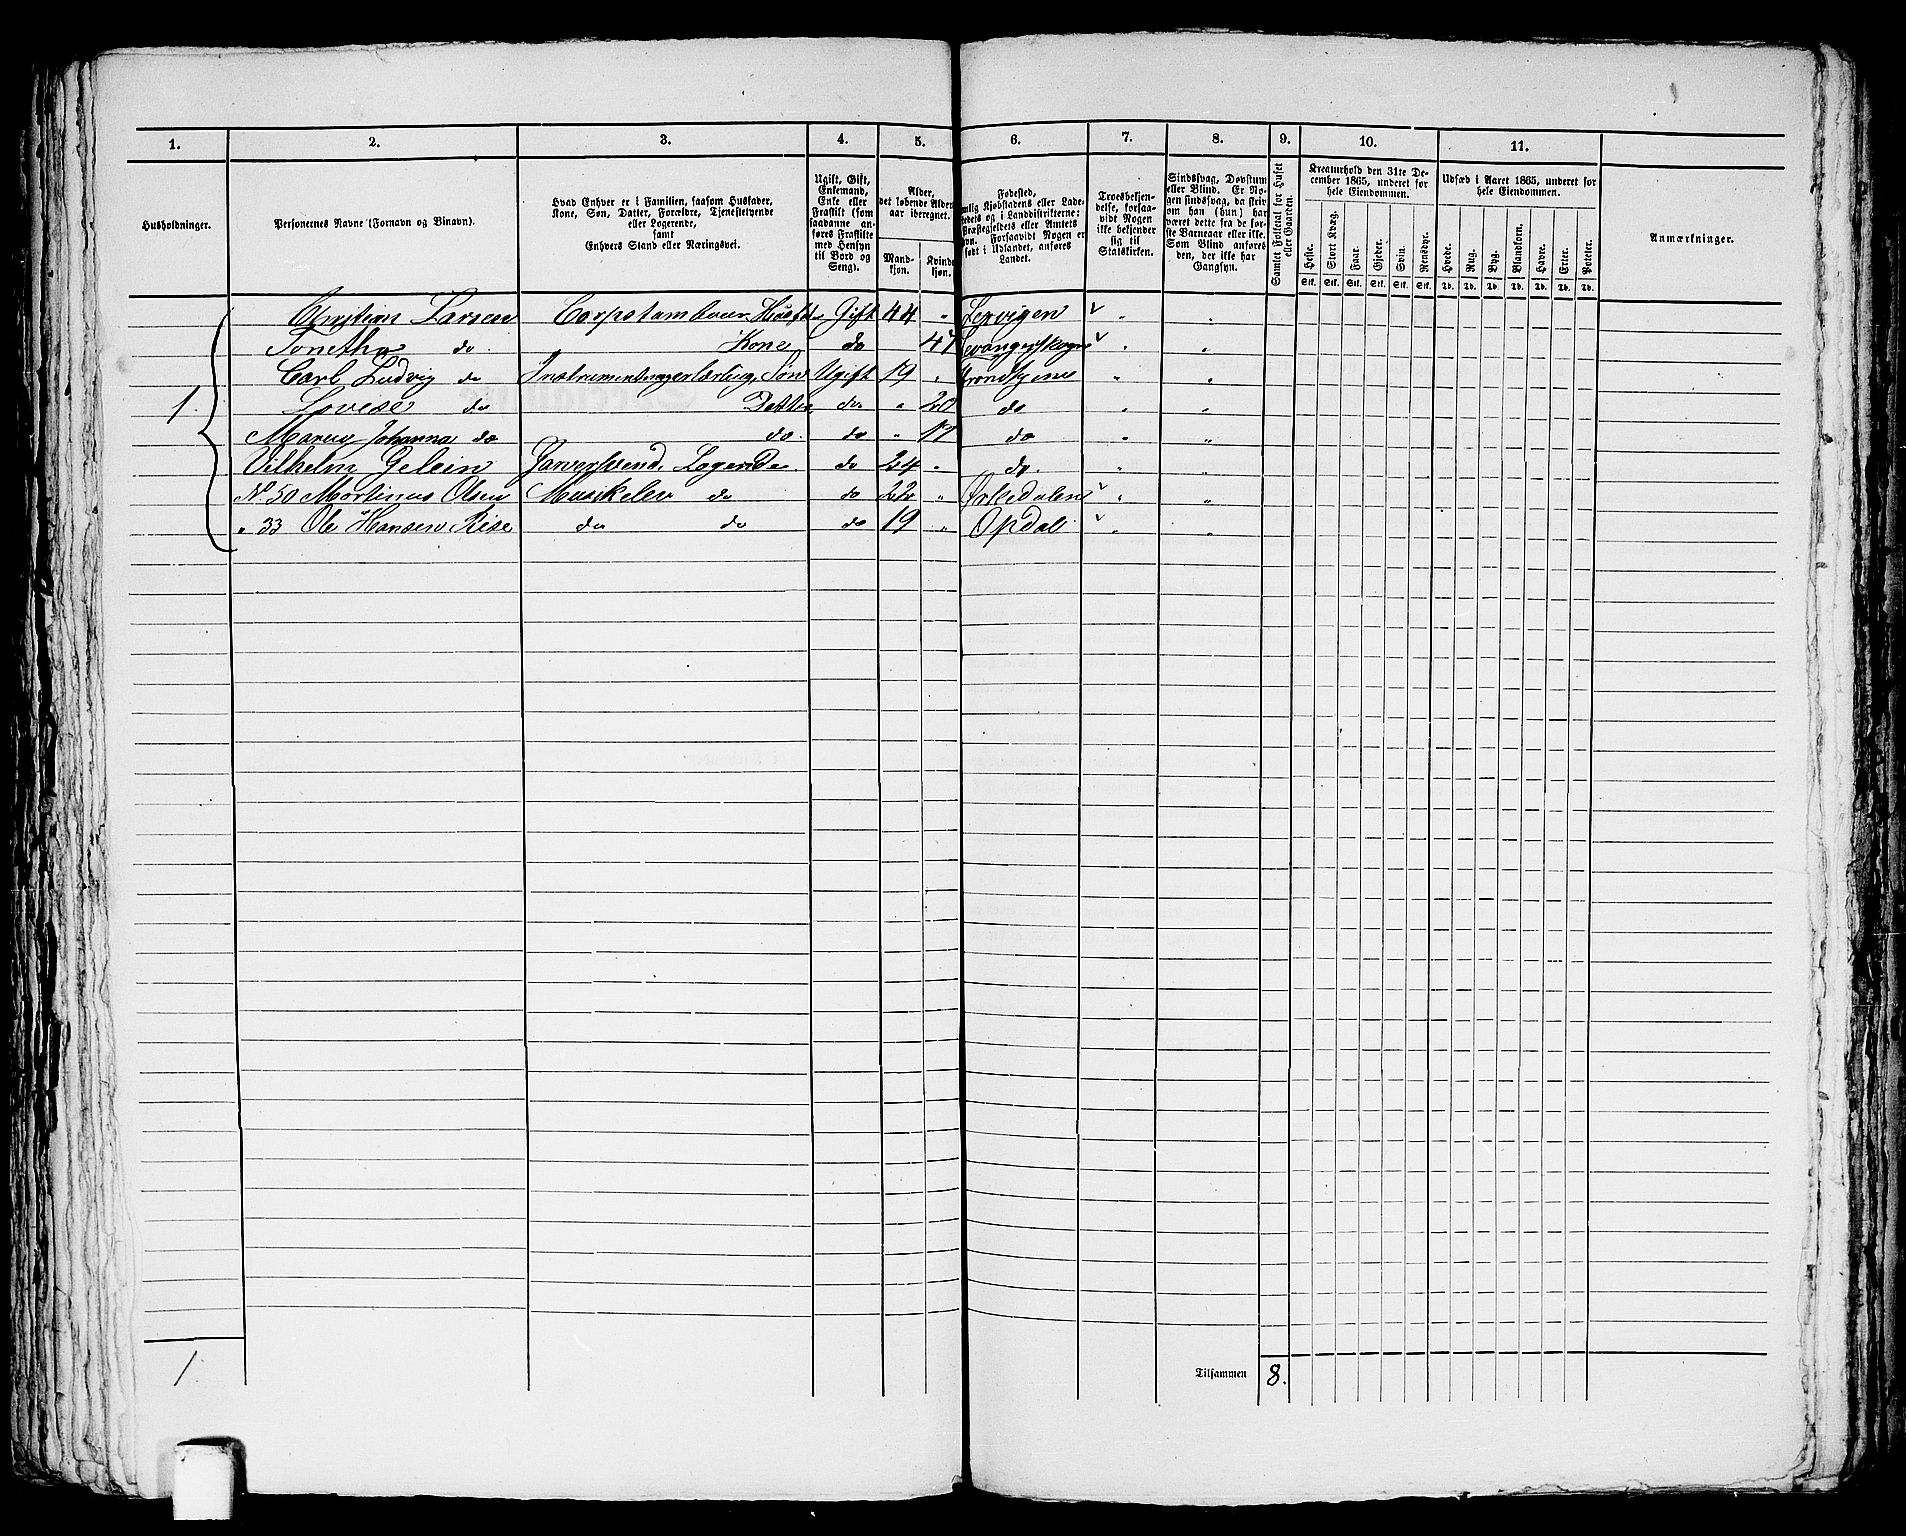 1. 2. 3. 4. 5. 6. 7. 8. 9. 10. 11.
Husholdninger.
Personernes Navne (Fornavn og Binavn).
Hvad Enhver er i Familien, saasom Husfader,
Kone, Søn, Datter, Forældre, Tjenestetyende
eller Logerende,
samt
Enhvers Stand eller Næringsvei.
Ugift, Gift,
Enkemand,
Enke eller
Fraskilt (som
saadanne an-
føres Fraskilte
med Hensyn
til Bord og
Seng).
Alder,
det løbende Alders-
aar iberegnet.
Mand-
kjøn.
Kvinde-
kjøn.
Fødested,
Kjøbstadens eller Lade-
stedets og i Landdistrikterne:
Præstegjeldets eller Amtets
Navn. Forsaavidt Nogen er
født i Udlandet, anføres
Landet.
Troesbekjen-
delse, forsaa-
vidt Nogen
ikke bekjender
sig til
Statskirken.
Sindssvag, Døvstum
eller Blind. Er No-
gen sindssvag, da skriv
om han (hun) har
været dette fra de før-
ste Barneaar eller ikke.
Som Blind anføres
den, der ikke har
Gangsyn.
Samlet Folketal for Huset
eller Gaarden.
Kreaturhold den 31te De-
cember 1865, underet for
hele Eiendommen.
Heste. Stort Kvæg. Faar. Gjeder. Svin. Rensdyr.
Stk. Stk. Stk. Stk. Stk. Stk.
Udsæd i Aaret 1865, underet for
hele Eiendommen.
Hvede. Rug. Byg. Blandkorn. Havre. Erter. Poteter.
Td. Td. Td. Td. Td. Td. Td.
Anmærkninger.
1.
Christian Larsen Corpstambour Husfdr Gift 44 " Lexvigen
Tonetha do Kone do 47 Levanger
Carl Ludvig do Søn Ugift 19 " Trondhjem
Lovise do Datter do " 20 do
Johanna do do. do " 17 do
Vilhelm Logerende do 24 " do.
No 50 Martinus Olsen Musikelev do do 22 " Ørkedalen
" 33 Ole Hansen Rise do do do 19 " Opdal
1.
Tilsammen 8.